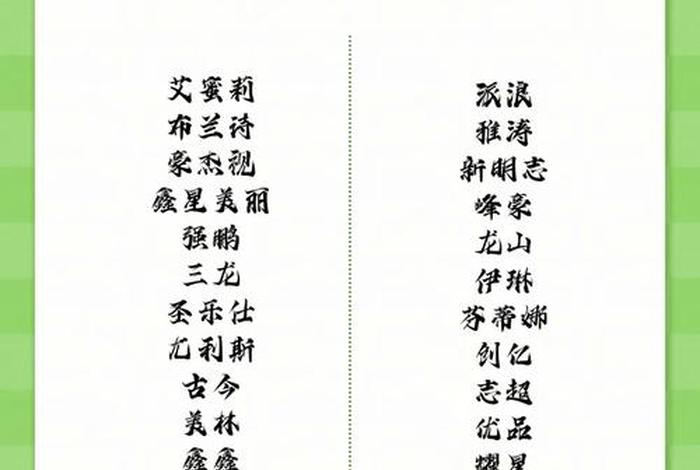 艾蜜莉
布兰诗
豪杰视
鑫星美丽
强鹏
三龙
圣乐仕
尤利斯
古今
美林
鑫鑫
派浪
雅涛
新明志
峰豪
龙山
伊琳
芬蒂娜
创亿
志超
优品
耀星